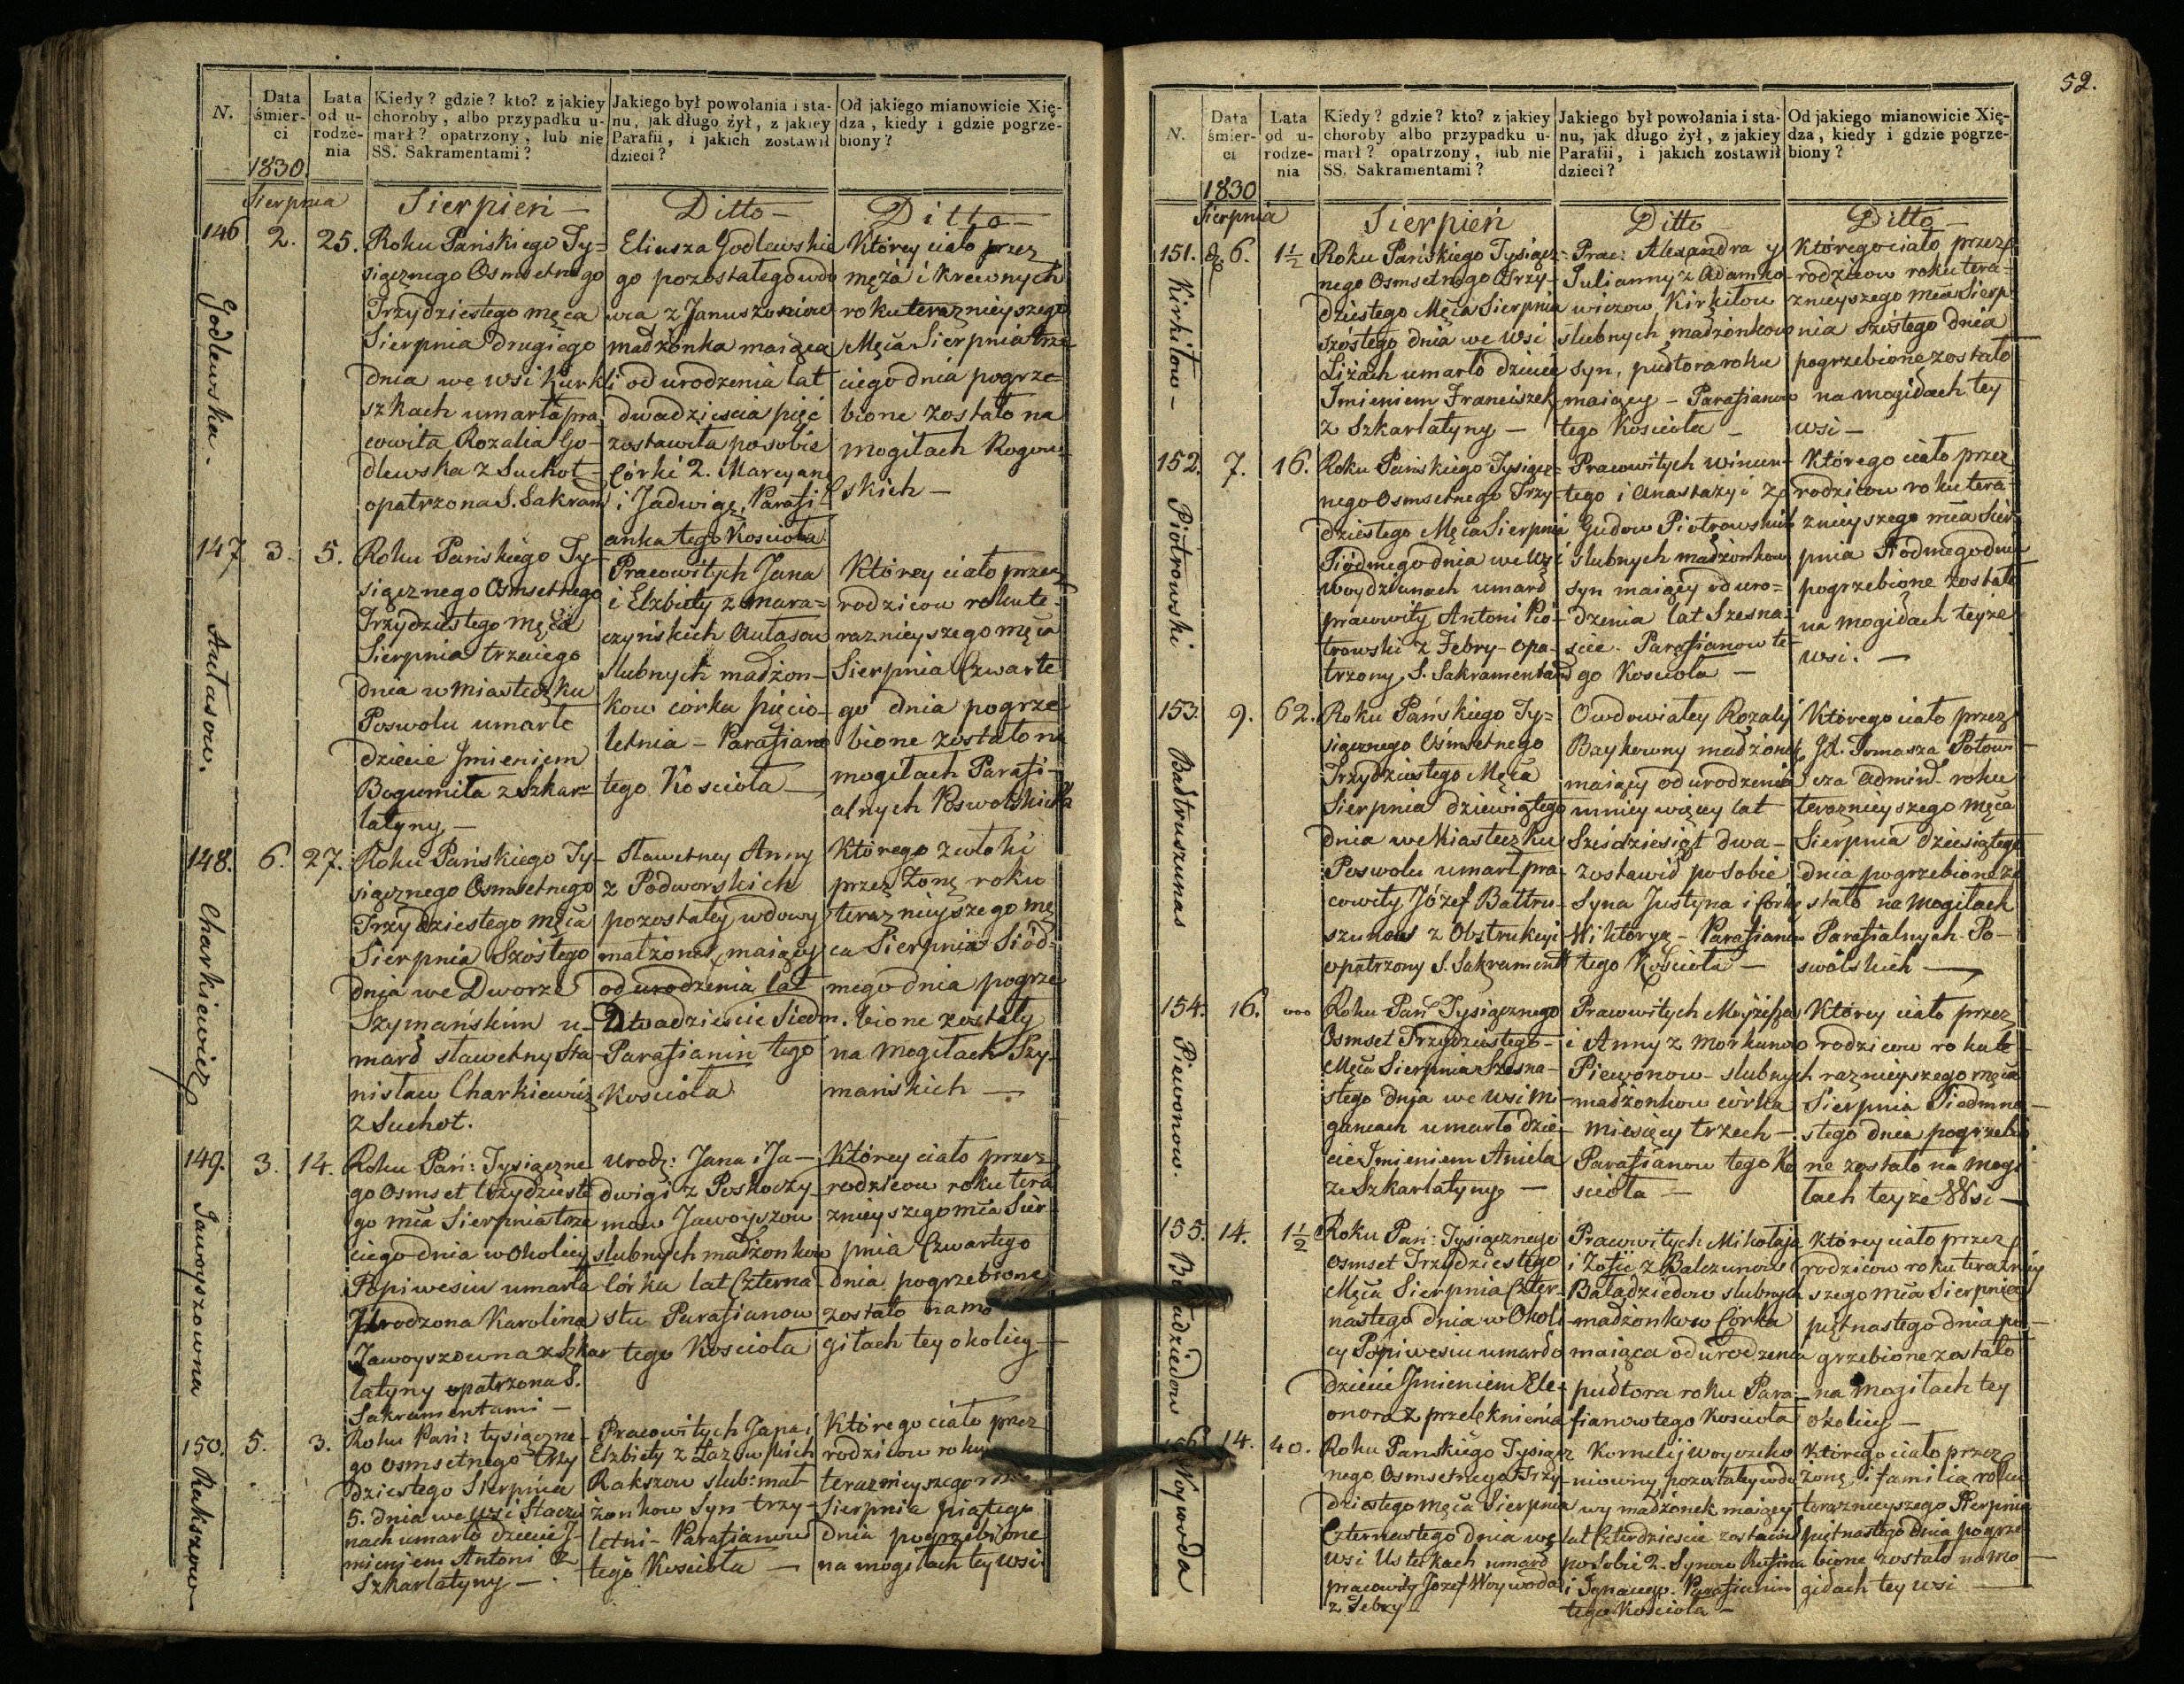 N.
Data śmier- ci
1830.
Lata od u- rodze- nia
Kiedy? gdzie? kto? z jakiey
choroby, albo przypadku u-
marł? opatrzony, lub nie
SS. Sakramentami?
Jakiego był powołania i sta-
nu, jak długo żył, z jakiey
Parafii, i jakich zostawił
dzieci?
Od jakiego mianowicie Xię-
dza, kiedy i gdzie pogrze-
biony?
Sierpnia
Sierpień —
Ditto —
Ditto —
146
Godlewska.
2.
25.
Roku Pańskiego Ty=
siącznego Osmsetnego
Trzydziestego męca
Sierpnia drugiego
dnia we wsi Kurkli
szkach umarła pra
cowita Rozalia Go-
dlewska z Suchot —
opatrzona S. Sakram
Eliasza Godlewskie
go pozostałego wdo
wca z Januszoniow
madżonka maiąca
od urodzenia lat
dwadzieścia pięć
zostawiła po sobie
Córki 2. Marcyanę
i Jadwigę, Parafi-
anka tego Kościoła
Którey ciało przez
męża i krewnych
roku teraznieyszego
Męca Sierpnia trze
ciego dnia pogrze=
bione zostało na
mogiłach Rogow
skich —
147
Autasow.
3.
5.
Roku Pańskiego Ty-
siącznego Osmsetnego
Trzydziestego Męca
Sierpnia trzeciego
dnia w miasteczku
Poswolu umarło
dziecie Jmieniem
Bogumiła z Szkar=
latyny —
Pracowitych Jana
i Elzbiety z Mara=
czyńskich Autasow
slubnych madżon-
kow córka pięcio-
letnia — Parafianow
tego Kościoła —
Którey ciało przez
rodzicow roku te-
raznieyszego męca
Sierpnia Czwarte
go dnia pogrze
bione zostało na
mogiłach Parafi-
alnych Poswolskich
148.
Charkiewicz
6.
27.
Roku Pańskiego Ty-
siącznego Osmsetnego
Trzydziestego męca
Sierpnia Szóstego
dnia we Dworze
Szymańskim u-
mard sławetny Sta
nisław Charkiewicz
z Suchot.
Sławetney Anny
z Podworskich
pozostałey wdowy
małżonek, maiący
od urodzenia lat
Dwadzieście Siedm.
Parafianin tego
Kościoła
Którego zwłoki
przez Żonę roku
teraznieyszego mę
ca Sierpnia Siód=
mego dnia pogrze
bione zostały
na Mogiłach Szy-
mańskich —
149.
Jawoyszowna
3.
14.
Roku Pań: Tysiączne
go Osmset trzydzieste
go mca Sierpnia trze
ciego dnia w Okolicy
Popiwesiu umarła
Urodzona Karolina
Jawoyszowna z Szkar
latyny opatrzona S.
Sakramentami —
Urodz: Jana i Ja-
dwigi z Poskoczy-
mow Jawoyszow
slubnych madżonkow
Córka lat Czterna
stu Parafianow
tego Kościoła
Którey ciało przez
rodzicow roku tera
znieyszego mca Sier-
pnia Czwartego
dnia pogrzebione
zostało na mo
giłach tey okolicy —
150.
Rukszow
5.
3.
Roku Pań: tysiączne-
go osmsetnego trzy
dziestego Sierpnia
5. dnia we wsi Staczu
nach umarło dziecie J-
mieniem Antoni z
Szkarlatyny —
Pracowitych Jana i
Elzbiety z Łazowskich
Rukszow slub: mał-
żonkow Syn trzy-
letni — Parafianow
tego Kościoła —
Którego ciało przez
rodzicow roku
teraznieyszego
Sierpnia piątego
dnia pogrzebione
na mogiłach tey wsi
52.
N.
Data śmier- ci
1830
Lata od u- rodze- nia
Kiedy? gdzie? kto? z jakiey
choroby albo przypadku u-
marł? opatrzony, lub nie
SS. Sakramentami?
Jakiego był powołania i sta-
nu, jak długo żył, z jakiey
Parafii, i jakich zostawił
dzieci?
Od jakiego mianowicie Xię-
dza, kiedy i gdzie pogrze-
biony?
Sierpnia
Sierpień
Ditto
Ditto —
151.
Kirkiłow —
6.
1½
Roku Pańskiego Tysiącz-
nego Osmsetnego Trzy-
dziestego Męca Sierpnia
szóstego dnia we wsi
Liżach umarło dziecie
Imieniem Franciszek
z Szkarlatyny —
Prac: Alexandra y
Julianny z Adamko-
wiczow Kirkiłow
slubnych madżonkow
syn, pułtora roku
maiący — Parafianow
tego Kościoła —
Którego ciało przez
rodzicow roku tera-
znieyszego mca Sierp
nia szóstego dnia
pogrzebione zostało
na mogiłach tey
wsi —
152.
Piotrowski
7.
16.
Roku Pańskiego Tysiącz=
nego Osmsetnego Trzy-
dziestego Męca Sierpnia
Siódmego dnia we wsi
Woydziunach umard
pracowity Antoni Pio
trowski z Febry — opa-
trzony S. Sakramentami
Pracowitych Wincen-
tego i Anastazyi z
Gudow Piotrowskich
slubnych madżonkow
syn maiący od uro=
dzenia lat Szesna-
ście. Parafianow te-
go Kościoła —
Którego ciało przez
rodzicow roku tera=
znieyszego mca Sier
pnia Siódmego dnia
pogrzebione zostało
na mogiłach teyże
wsi. —
153.
Bałtruszunas
9.
62.
Roku Pańskiego Ty=
siącznego Osmsetnego
Trzydziestego Męca
Sierpnia dziewiątego
dnia we Miasteczku
Poswolu umarł pra-
cowity Józef Bałtru-
szunas z Obstrukcyi
opatrzony S. Sakrament
Owdowiałey Rozalyi
Baykowny madżonek
maiący od urodzenia
mniey więcey lat
Sześdziesiąt dwa —
zostawił po sobie
Syna Justyna i Córkę
Wiktoryą — Parafianow
tego Kościoła —
Którego ciało przez
Jd. Tomasza Potow-
cza Admin. roku
teraznieyszego męca
Sierpnia dziesiątego
dnia pogrzebione zo
stało na Mogiłach
Parafialnych Po-
swólskich —
154.
Piewonow.
16.
Roku Pań Tysiącznego
Osmset Trzydziestego —
Męca Sierpnia Szesna-
stego dnia we wsi Mi-
ganciach umarło dzie-
cie Jmieniem Aniela
z Szkarlatyny —
Pracowitych Moyżesza
i Anny z Morkunow
Piewonow — slubnych
madżonkow córka
miesięcy trzech —
Parafianow tego Ko
ścioła —
Którey ciało przez
rodzicow roku te-
raznieyszego męca
Sierpnia Siedmna-
stego dnia pogrzebio
ne zostało na mogi
łach teyże Wsi —
155.
14.
1½
Roku Pań: Tysiącznego
osmset Trzydziestego
Męca Sierpnia Czter-
nastego dnia w Okoli-
cy Popiwesiu umardo
dziecie Jmieniem Ele-
onora z przelęknienia
Pracowitych Mikołaja
i Zofii z Balczunow
Baładziedow slubnych
madżonkow Córka
maiąca od urodzenia
pułtora roku Para-
fianow tego Kościoła
Którey ciało przez
rodzicow roku teraźniey
szego mca Sierpnia
piętnastego dnia po-
grzebione zostało
na Mogiłach tey
okolicy —
Woywoda
14.
40.
Roku Pańskiego Tysiącz
nego Osmsetnego Trzy-
dziestego męca Sierpnia
Czternastego dnia we
wsi Usteikach umard
pracowity Józef Woywoda
z Febry
Kornelij Woyczeko
niowny pozostałey wdo
wy madżonek maiący
lat Czterdzieście zostawił
po sobie 2. Synow Rufina
i Jgnacego. Parafianin
tego Kościoła —
Którego ciało przez
żonę, i familią roku
teraznieyszego Sierpnia
piętnastego dnia pogrze
bione zostało na mo
giłach tey wsi —